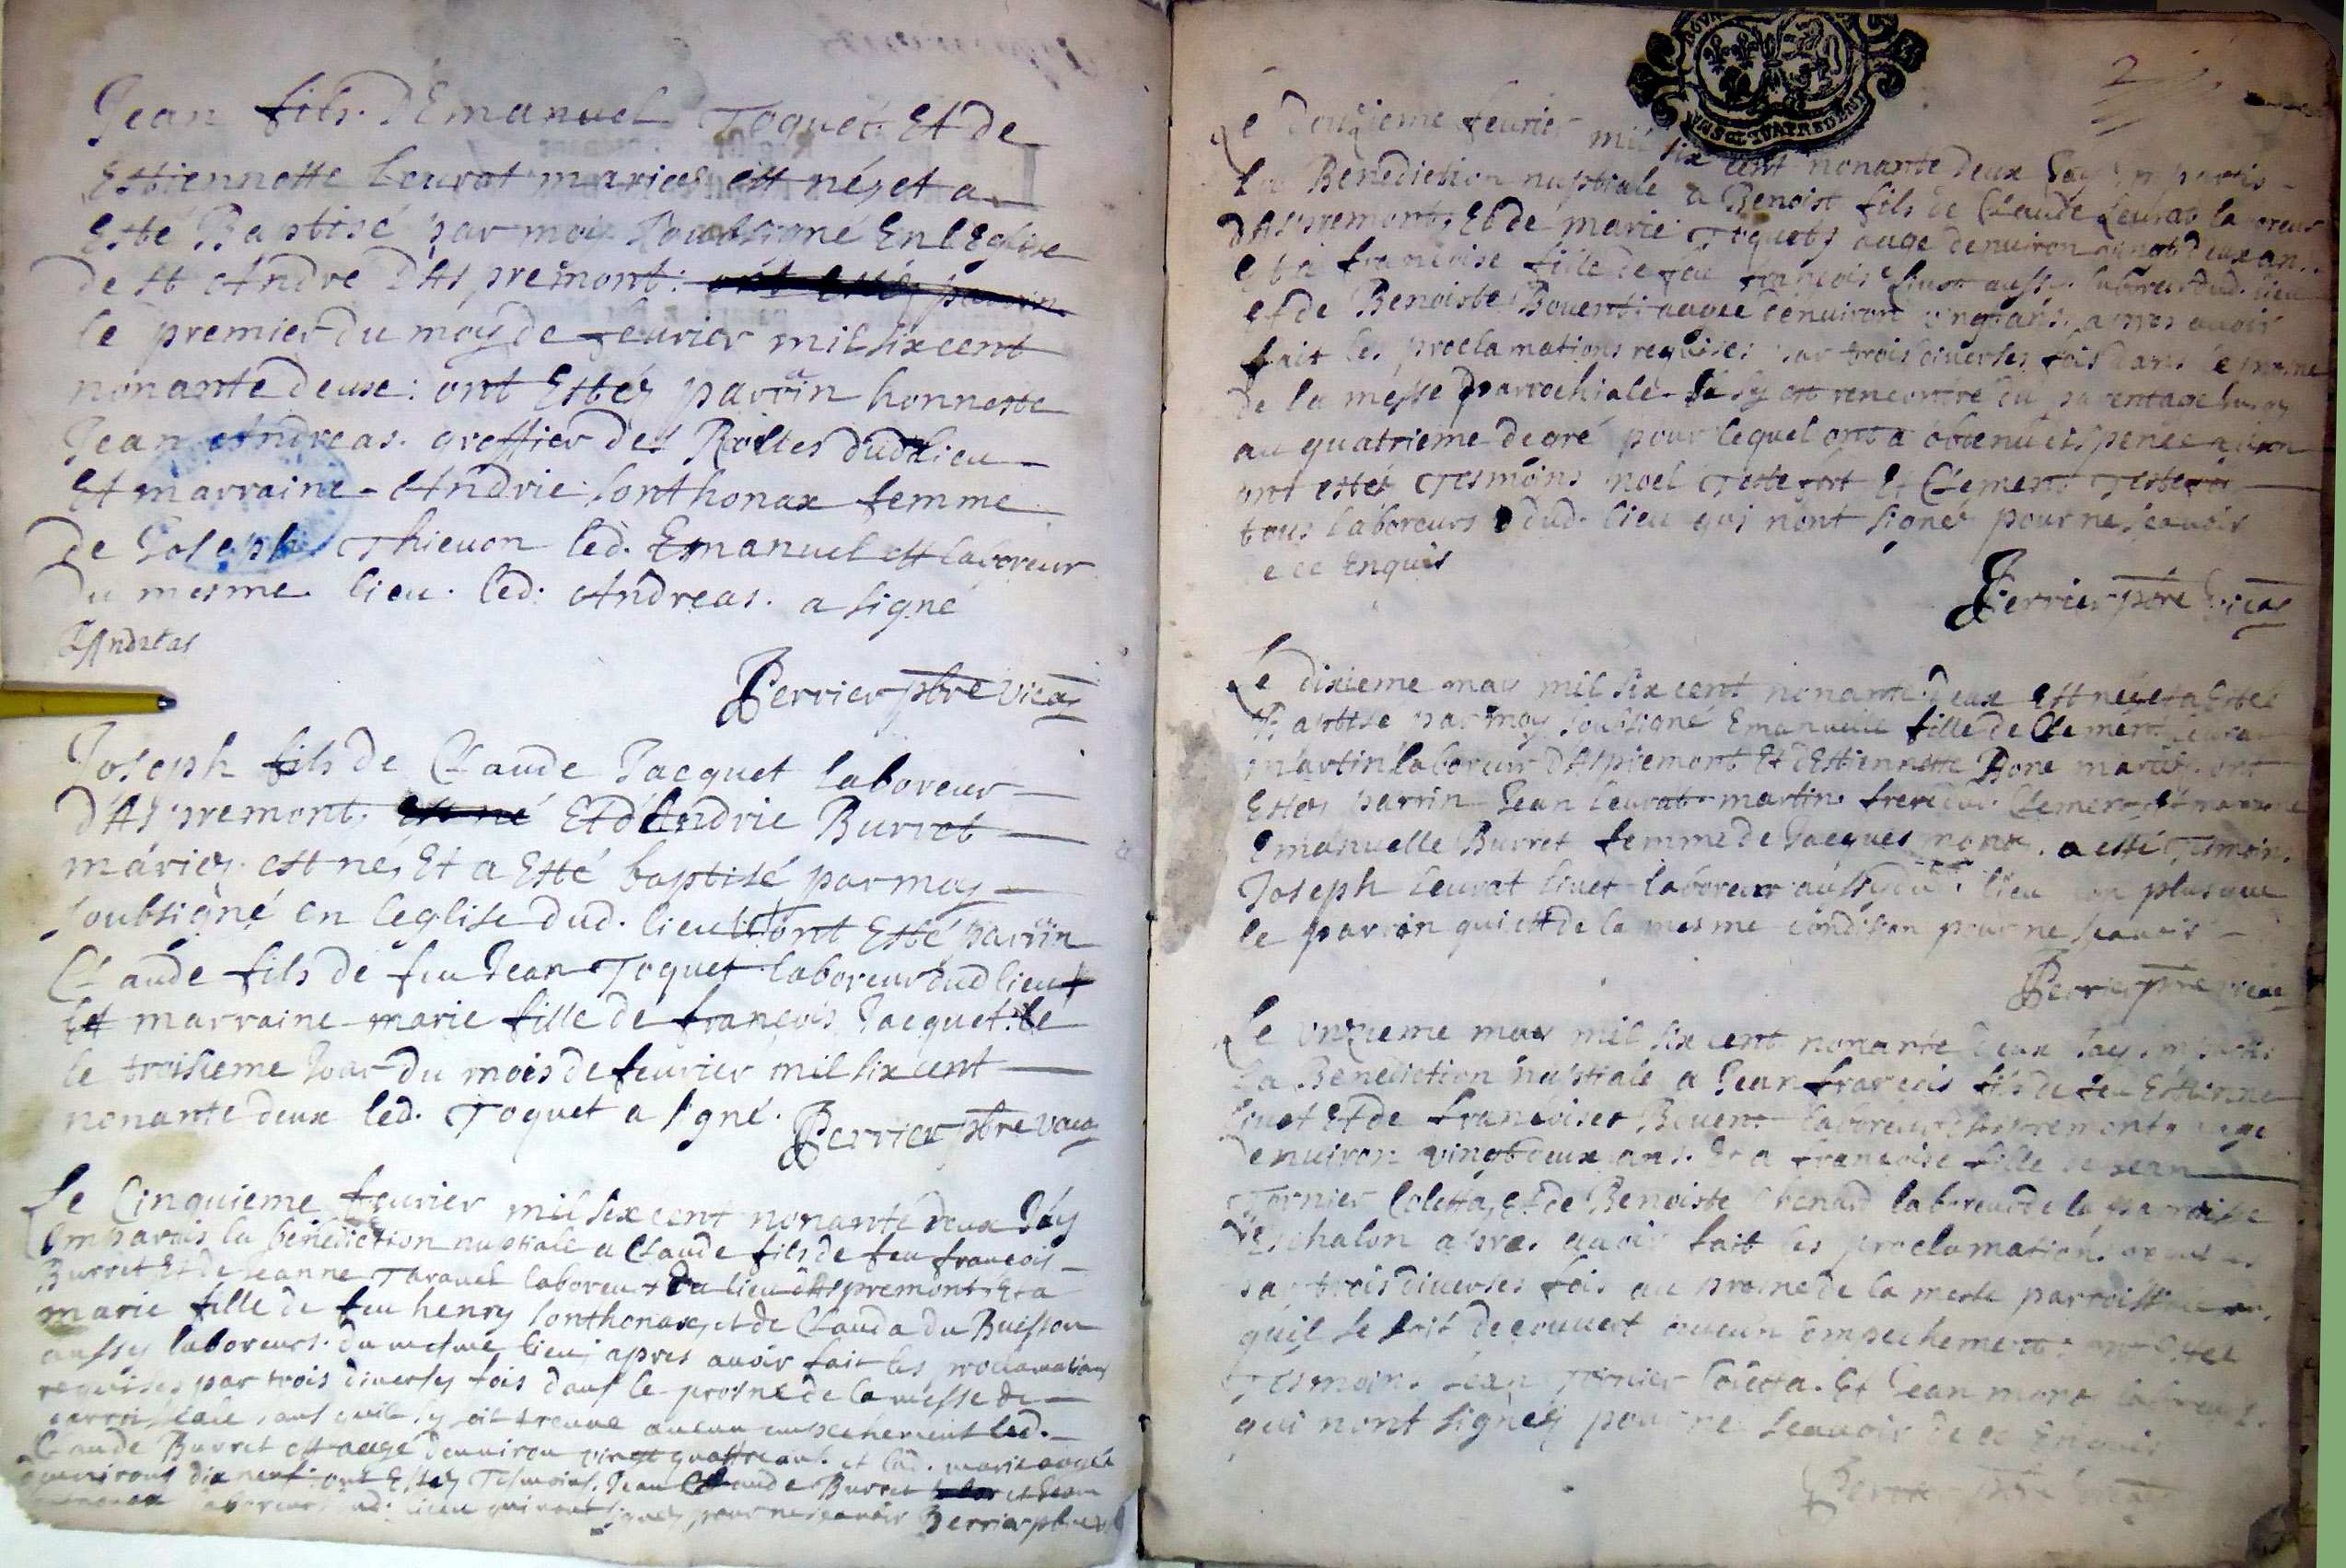 Jean fils. DEmanuel Toquet. Et de
Estiennette Leurat mariés est né, et a
Esté Baptisé par moy Soubsigné En lEglise
de St Andre DAspremont:
le premier du moy de feurier mil six cent
nonante deux: ont Estéz parrin honneste
Jean Andreas. greffier des Roolles dud lieu
Et marraine Andrie. Sonthonax femme
De Joseph Thieuon led. Emanuel est laboreur
Du mesme lieu. led. Andreas. a signé
JAndreas
Perrier pbre vica
Joseph fils de Claude Jacquet laboreur
d'Aspremont. Et d'Andrie Burret
mariés. est né, Et a Esté baptisé par moy
soubsigné en leglise dud. lieu ont Esté parrin
Claude fils de feu Jean Toquet laboreur dud lieu
Et marraine marie fille de françois Jacquet. le
le troisieme Jour du mois de feurier mil six cent
nonante deux led. Toquet a signé. Perrier pbre vica
Le Cinquieme feurier mil six cent nonante deux Jay
Imparti la bénédiction nuptiale a Claude fils de feu françois
Burret Et de Jeanne Tarauel laboreur du lieu dAspremont, Et a
marie fille de feu henry Sonthonax, et de Clauda du Buisson
aussy laboreurs. du mesme lieu, apres auoir fait les proclamations
requises par trois diuerses fois dans le prosne de la messe de
parroissiale sans quil sy soit treuué aucun empechement led.
Claude Burret est aagé denuiron vingt quattre ans. et lad. marie aagée
denuiron dix neuf: ont Estéz Tesmoins. Jean Claude Burret et Jean
laboreurs dud. lieu qui nont signéz, pour ne scauoir Perrier pbre
2
Le douzieme feurier mil six cent nonante deux Jay Imparti
la Benediction nuptiale a Benoist fils de Claude Leurat laboreur
dAspremont, Et de marie Toquet, aagé denuiron vingt deux an..
Et a françoise fille de feu françois Liuet aussy laboreur dud. lieu
et de Benoiste Bouent. aagée denuiron vingt ans. apres auoir
fait les proclamations requises par trois diuerses fois dans le prosne
de la messe parrochiale. Il sy est rencontré du parentage
au quatrieme degré pour lequel ont obtenu dispense
ont estéz Tesmoins noel Testefort Et Clement Testefort
tous laboreurs dud. lieu qui nont signéz pour ne scauoir
de ce Enquis
Perrier pbre vicar
Le dixieme may mil six cent nonante deux est née, et a Esté
Baptisé par moy soubsigné Emanuelle fille de Clement Leurat
martin laboreur dAspremont Et dEstiennette mariés. ont
Estéz parrin Jean Leurat martin frere dud. Clement et marraine
Emanuelle Burret femme de Jacques mona. a esté Tesmoin.
Joseph Leurat Liuet laboreur aussy du lieu non plus que
le parrin qui est de la mesme condition pour ne scauoir
Perrier pbre vicar
Le vnzieme may mil six cent nonante deux Jay Imparti
la Benediction nuptiale a Jean françois fils de feu Estienne
Liuet Et de françoise Bouent laboreur dAspremont, aagé
denuiron vingt deux ans. Et a françoise fille de Jean
Tornier Coletta, Et de Benoiste benard laboreur de la parroisse
dEschalon apres auoir fait les proclamations requises
par trois diuerses fois au prosne de la messe parroissiale
quil se soit decouuert aucun empechement ont Esté
Tesmoins Jean Tornier Coletta. Et Jean mona laboreurs.
qui nont signéz pour ne scauoir de ce Enquis
Perrier pbre vicar